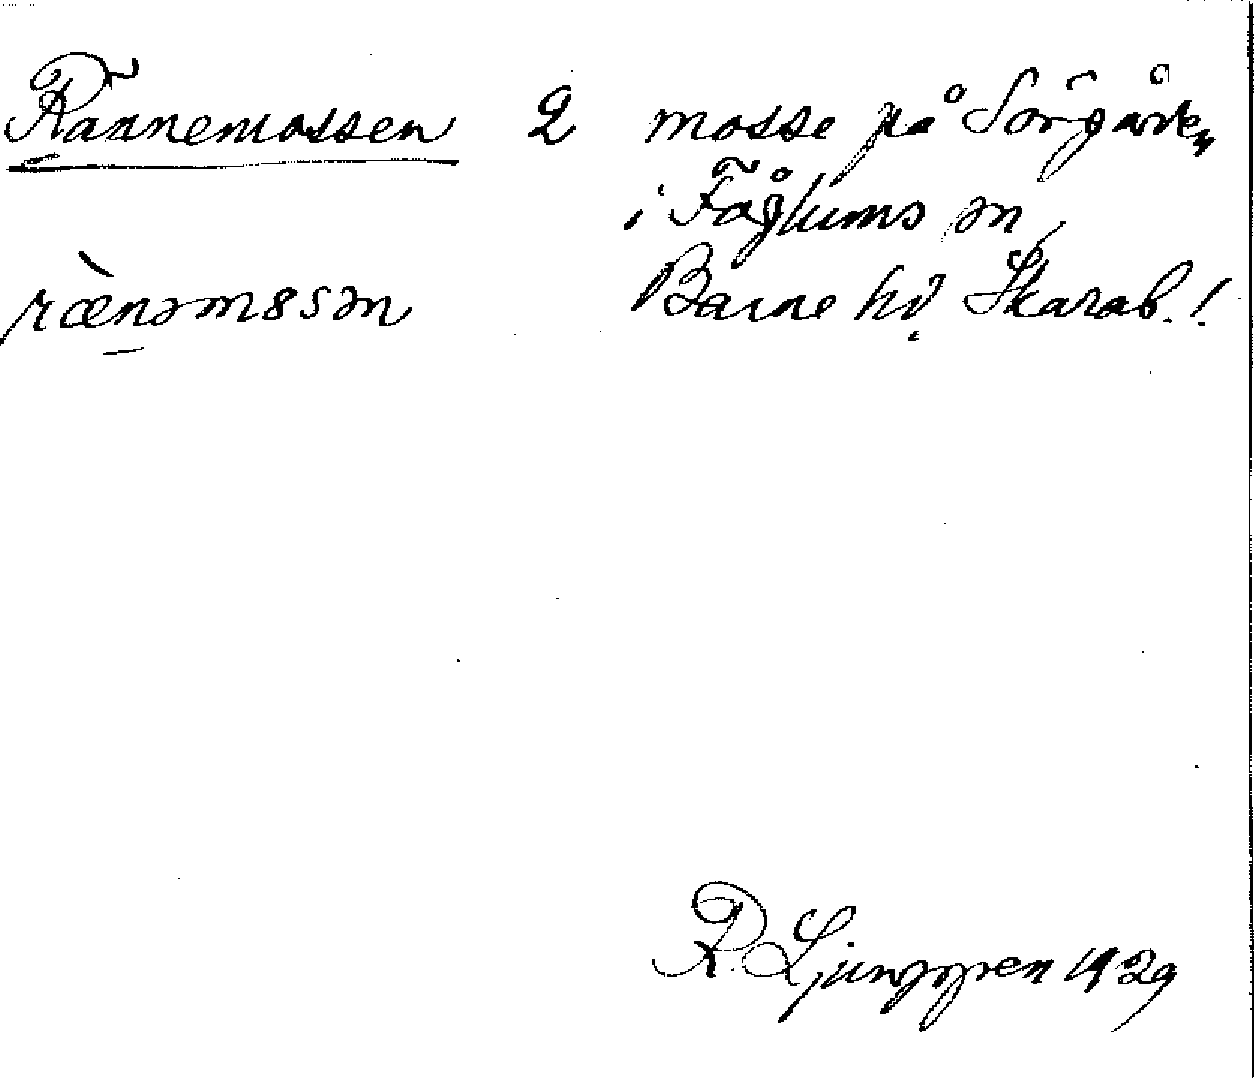 Rännemossen 2 mosse på Sörgården
i Fåglums sn,
rænəm8sən Barne hd Skarab.!
R. Ljunggren 1929